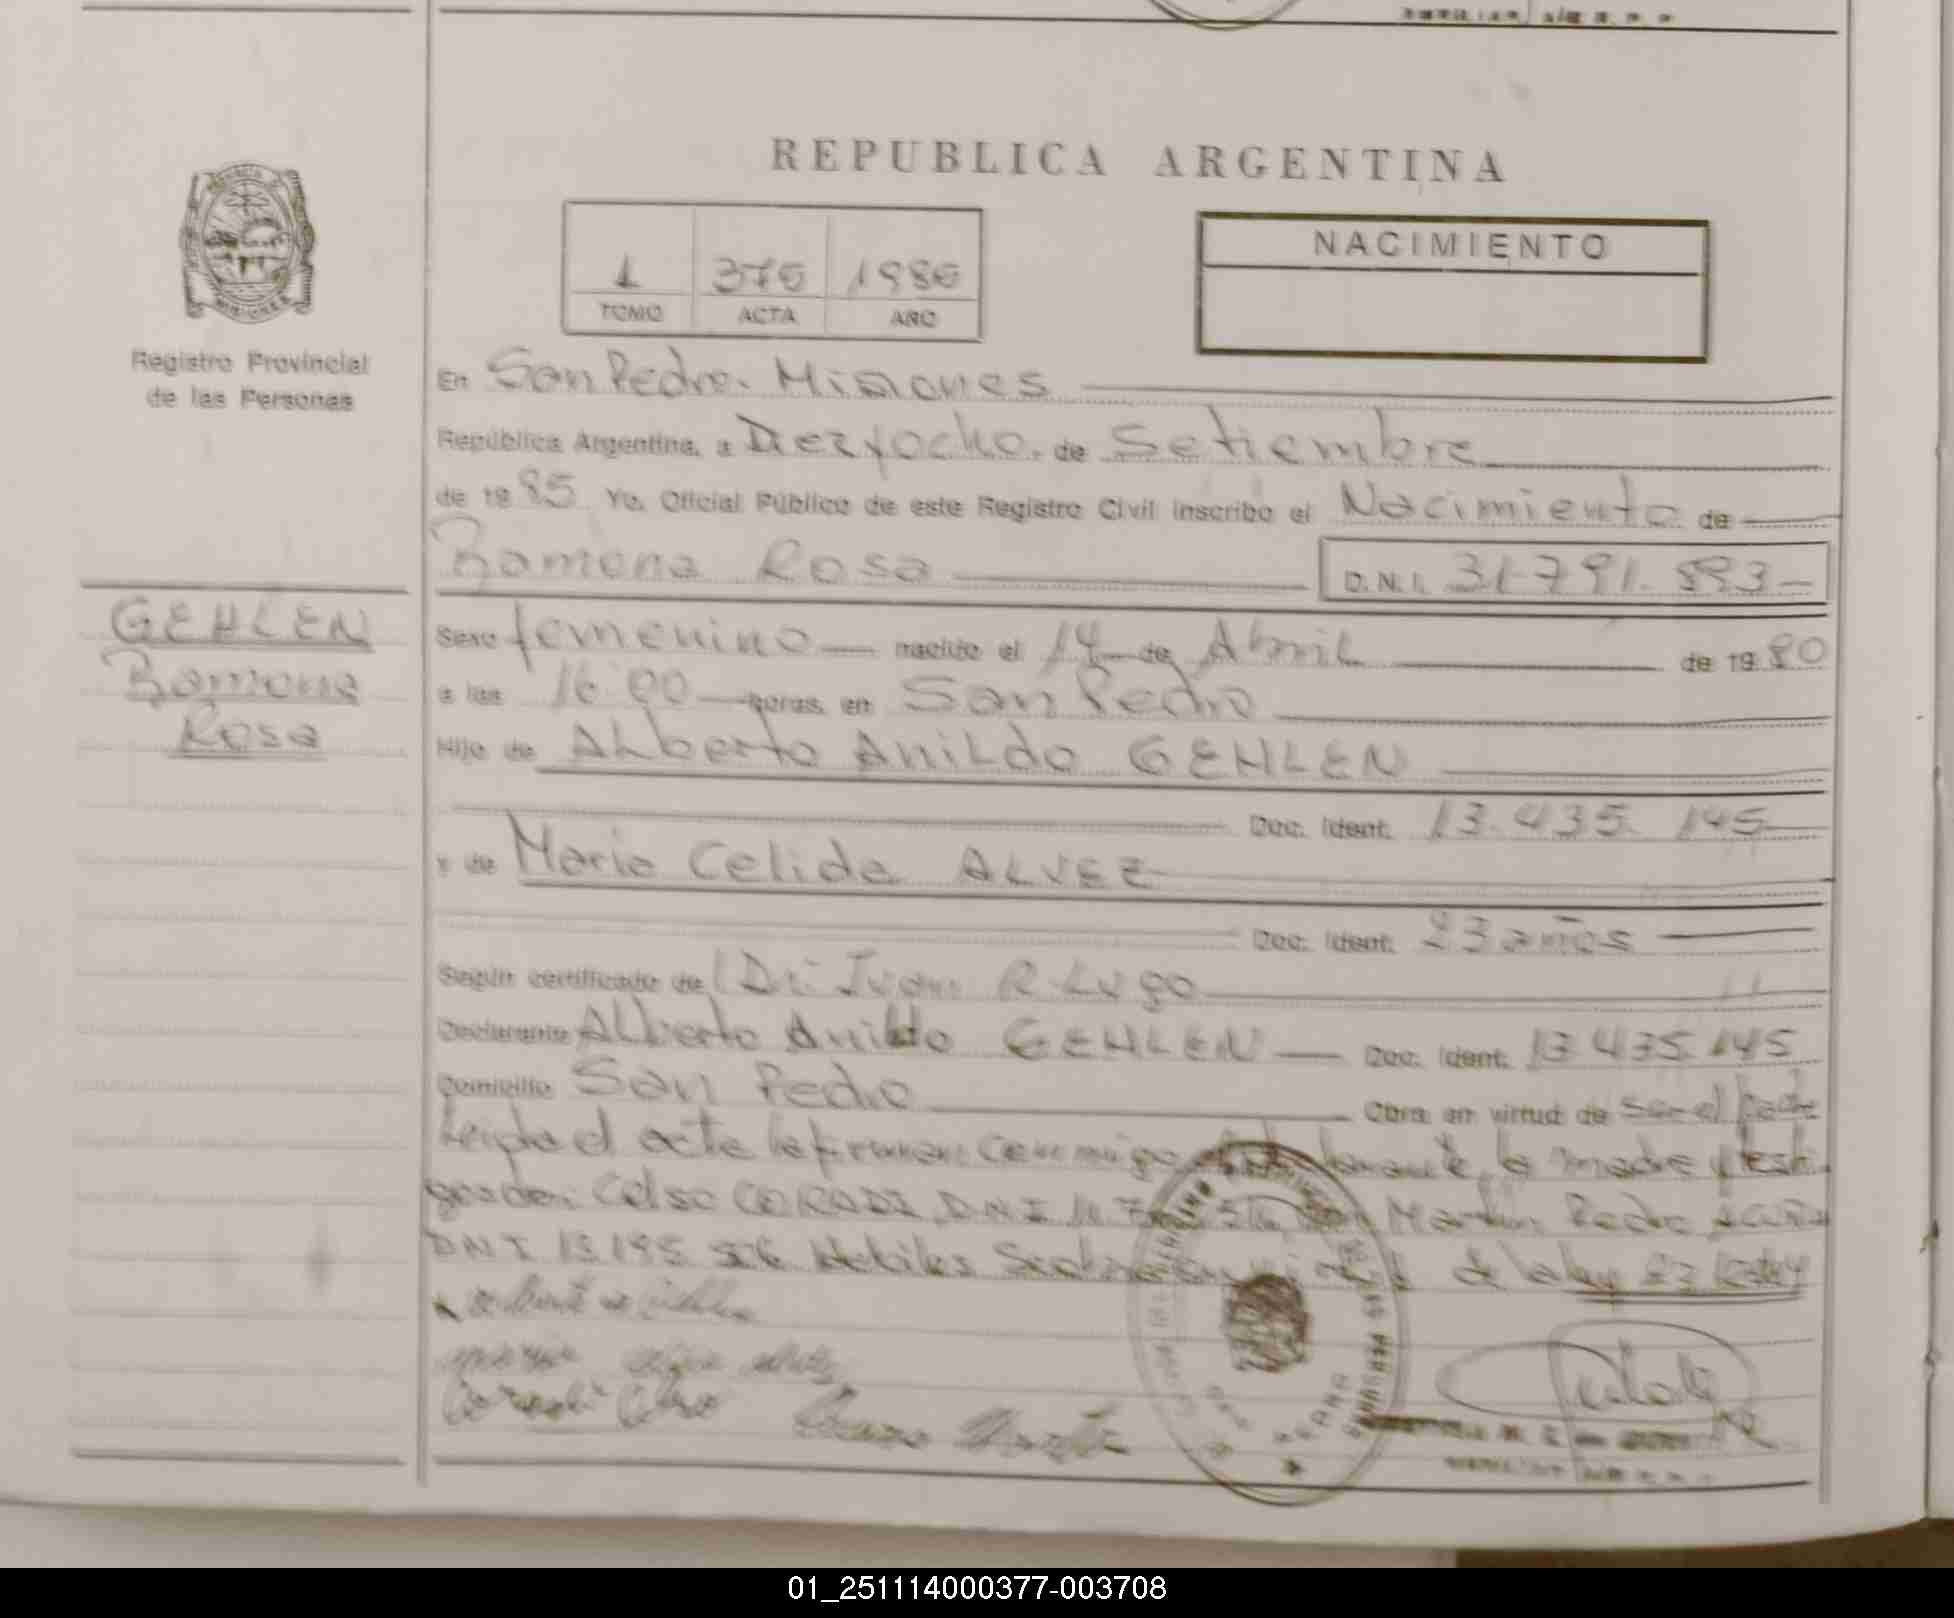 REPUBLICA ARGENTINA
NACIMIENTO
1 376 1986
TOMO ACTA AÑO
Registro Provincial
de las Personas
En San Pedro. Misiones
República Argentina, a Diezyocho. de Setiembre
de 19 85 Yo, Oficial Público de este Registro Civil inscribo el Nacimiento de
Ramona Rosa D.N.I. 31.791.893
GEHLEN
Ramona
Rosa
Sexo femenino nacido el 14 de Abril de 19 80
a las 16 00 horas, en San Pedro
Hijo de Alberto Anildo GEHLEN
Doc. Ident. 13.435.145
y de Maria Celida ALVEZ
Doc. Ident. 23 años
Según certificado de Dr. Juan R. Lugo
Declarante Alberto Anildo GEHLEN Doc. Ident. 13.435.145
Domicilio San Pedro Obra en virtud de ser el padre
Leida el acta la firman conmigo la madre y testi
gos don Celso CORADI DNI Martin Pedro
DNI 13.195 Habiles de la ley
01_251114000377-003708